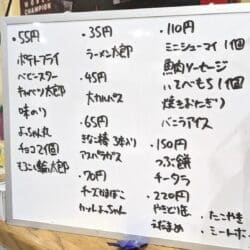 CHAMPION
・55円
ポテトフライ
ベビースター
キャベツ太郎
味のり
よっちゃん丸
チョコ2個
もろこし輪太郎
・35円
ラーメン太郎
・45円
大カルパス
・65円
きなこ棒 3本入り
アスパラガス
・70円
チーズかまぼこ
カットよっちゃん
・110円
ミニシューマイ 1個
魚肉ソーセージ
いそべもち 1個
焼きおにぎり
バニラアイス
・150円
つぶ餅
チータラ
・220円
やきとり缶
えだまめ
・たこやき
・ミートボール